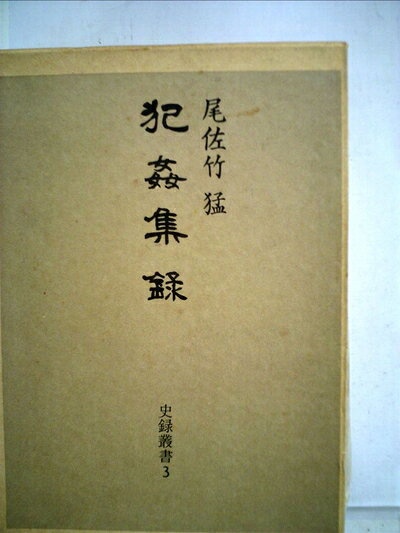 尾佐竹 猛
犯姦集録
史録叢書3